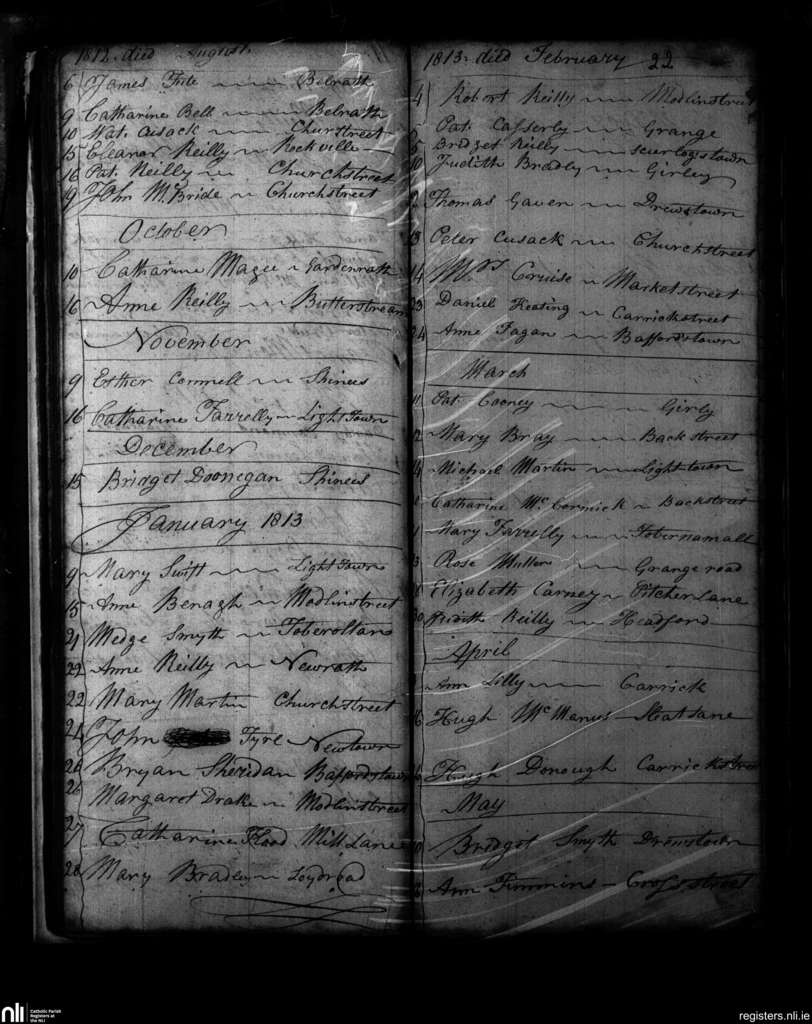 1812 died August
6 James Tute Belrath
9 Catharine Bell Belrath
10 Mat. Cusack Churstreet
15 Eleanor Reilly Rockville
16 Pat. Reilly Churchstreet
19 John McBride Churchstreet
October
10 Catharine Magee Gardenrath
16 Anne Reilly Butterstream
November
9 Esther Connell Shinees
16 Catharine Farrelly Light Town
December
15 Bridget Doonegan Shinees
January 1813
9 Mary Swift Light Town
15 Anne Benagh Modlinstreet
21 Medge Smyth Toberoltan
22 Anne Reilly Newrath
22 Mary Martin Churchstreet
24 John Tyre Newtown
26 Bryan Sheridan Baffordstown
26 Margaret Drake Modlinstreet
27 Catharine Flood Mill Lane
28 Mary Bradley Loydroad
1813 died February 22
4 Robert Reilly Modlinstreet
Pat. Casserly Grange
5 Bridget Reilly Scurlogstown
10 Judith Bradly Girley
12 Thomas Gaven Drewstown
13 Peter Cusack Churchstreet
14 Mrs Cruise Marketstreet
23 Daniel Keating Carrickstreet
24 Anne Fagan Baffordstown
March
11 Pat Cooney Girly
12 Mary Bray Backstreet
14 Michael Martin Lighttown
Catharine McCormick Backstreet
Mary Farrelly Tobernamall
Rose Mullen Grange road
Elizabeth Carney Pitcher Lane
30 Judith Reilly Headford
April
Ann Lilly Carrick
Hugh McManus Lane
Hugh Donough Carrickstreet
May
Bridget Smyth Drewstown
Ann Timmins Crossstreet
nli Catholic Parish
Registers at
the NLI
registers.nli.ie